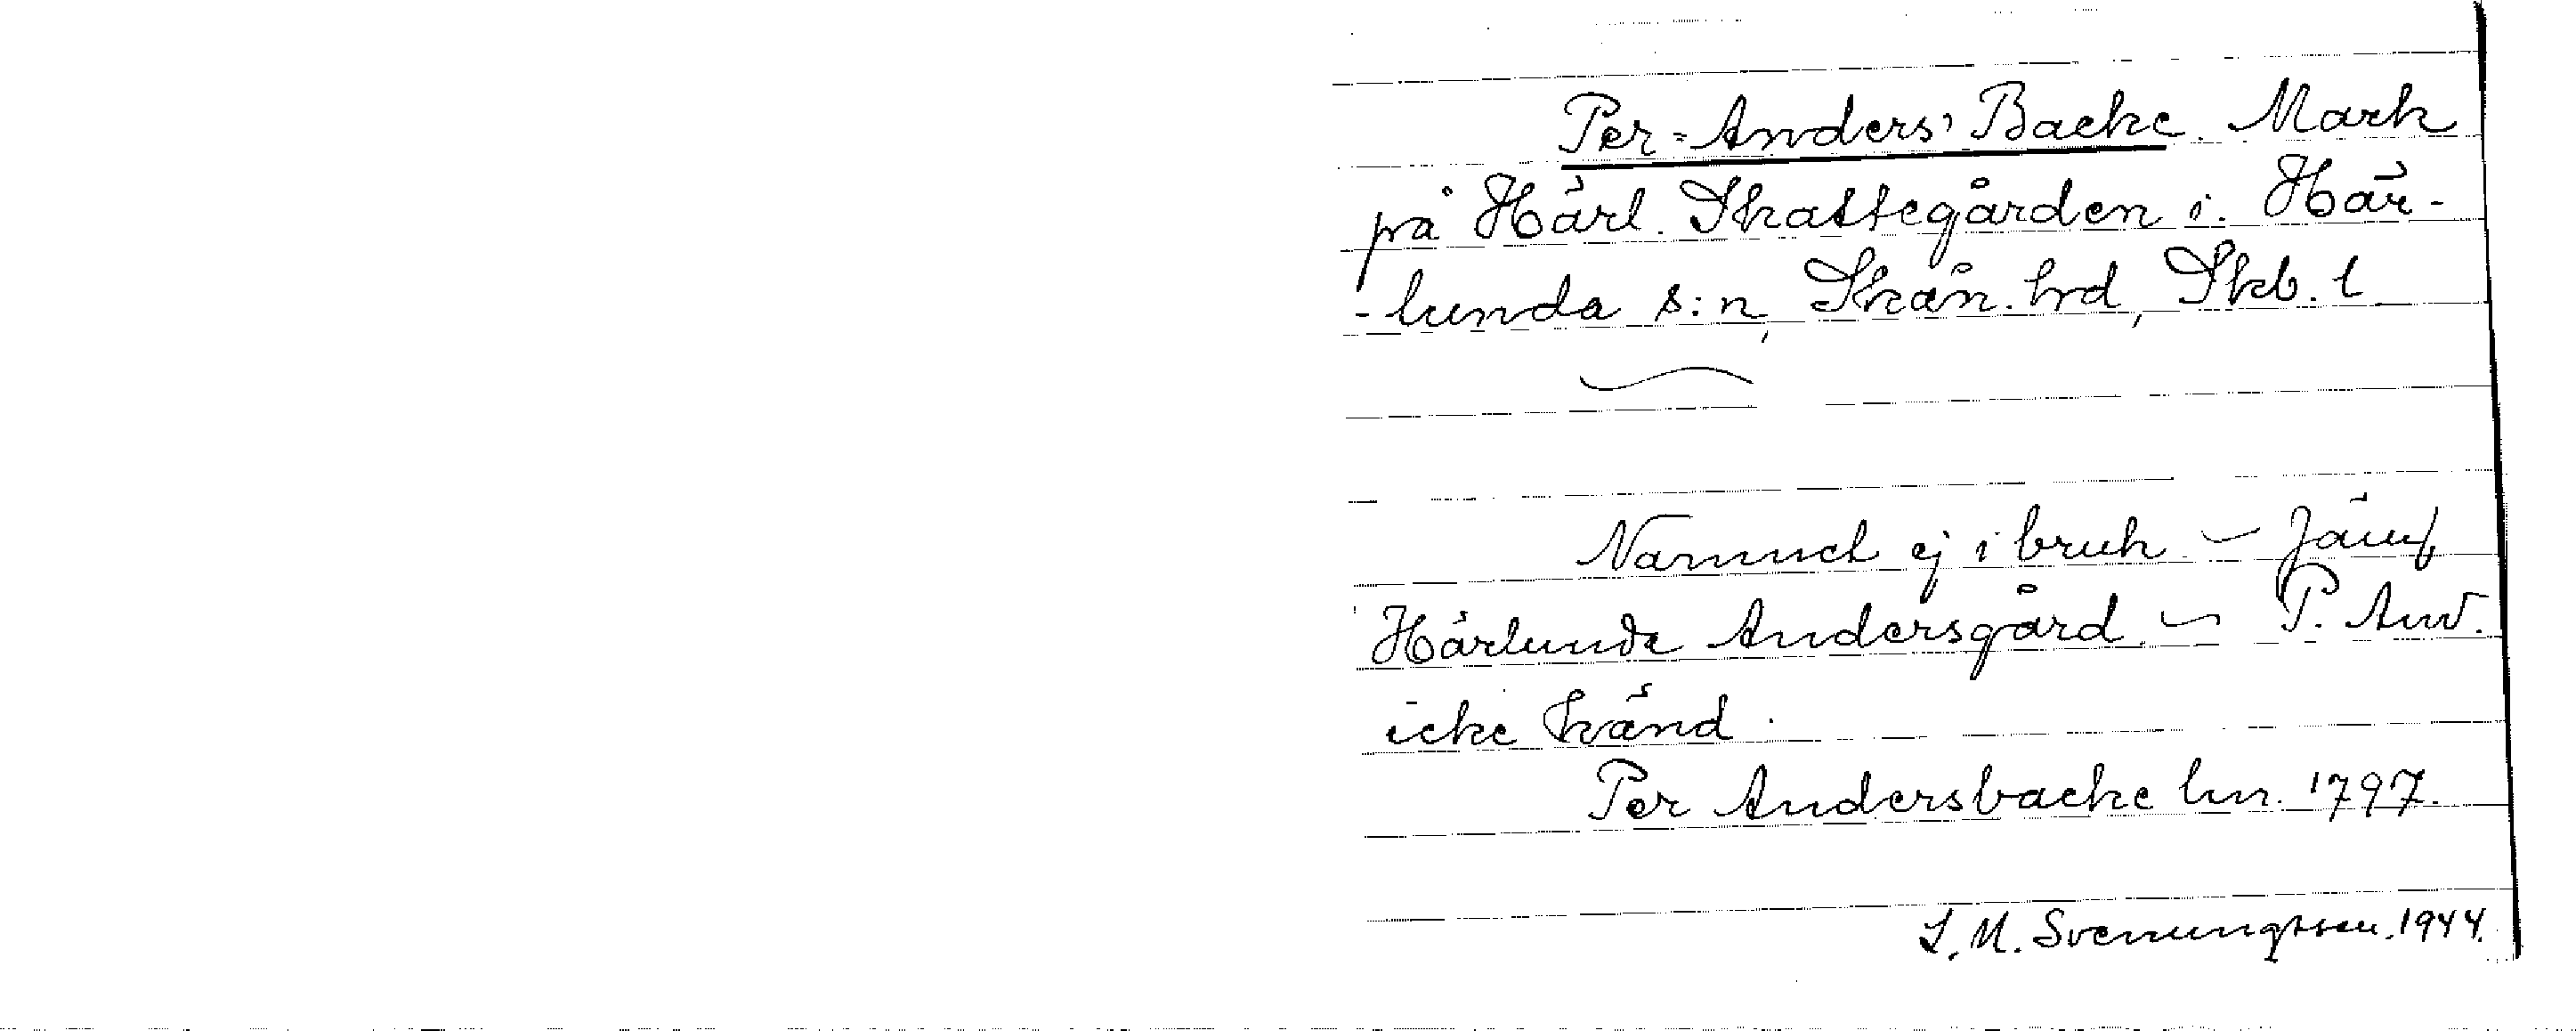 Per-Anders' Backe. Mark
på Härl. Skattegården i. Här-
-lunda s:n, Skån. hrd, Skb. l
Namnet ej i bruk – Jämf
Härlunda Andersgård. – P. And.
icke känd.
Per Andersbacke lm. 1797.
L. M. Svenungsson. 1944.